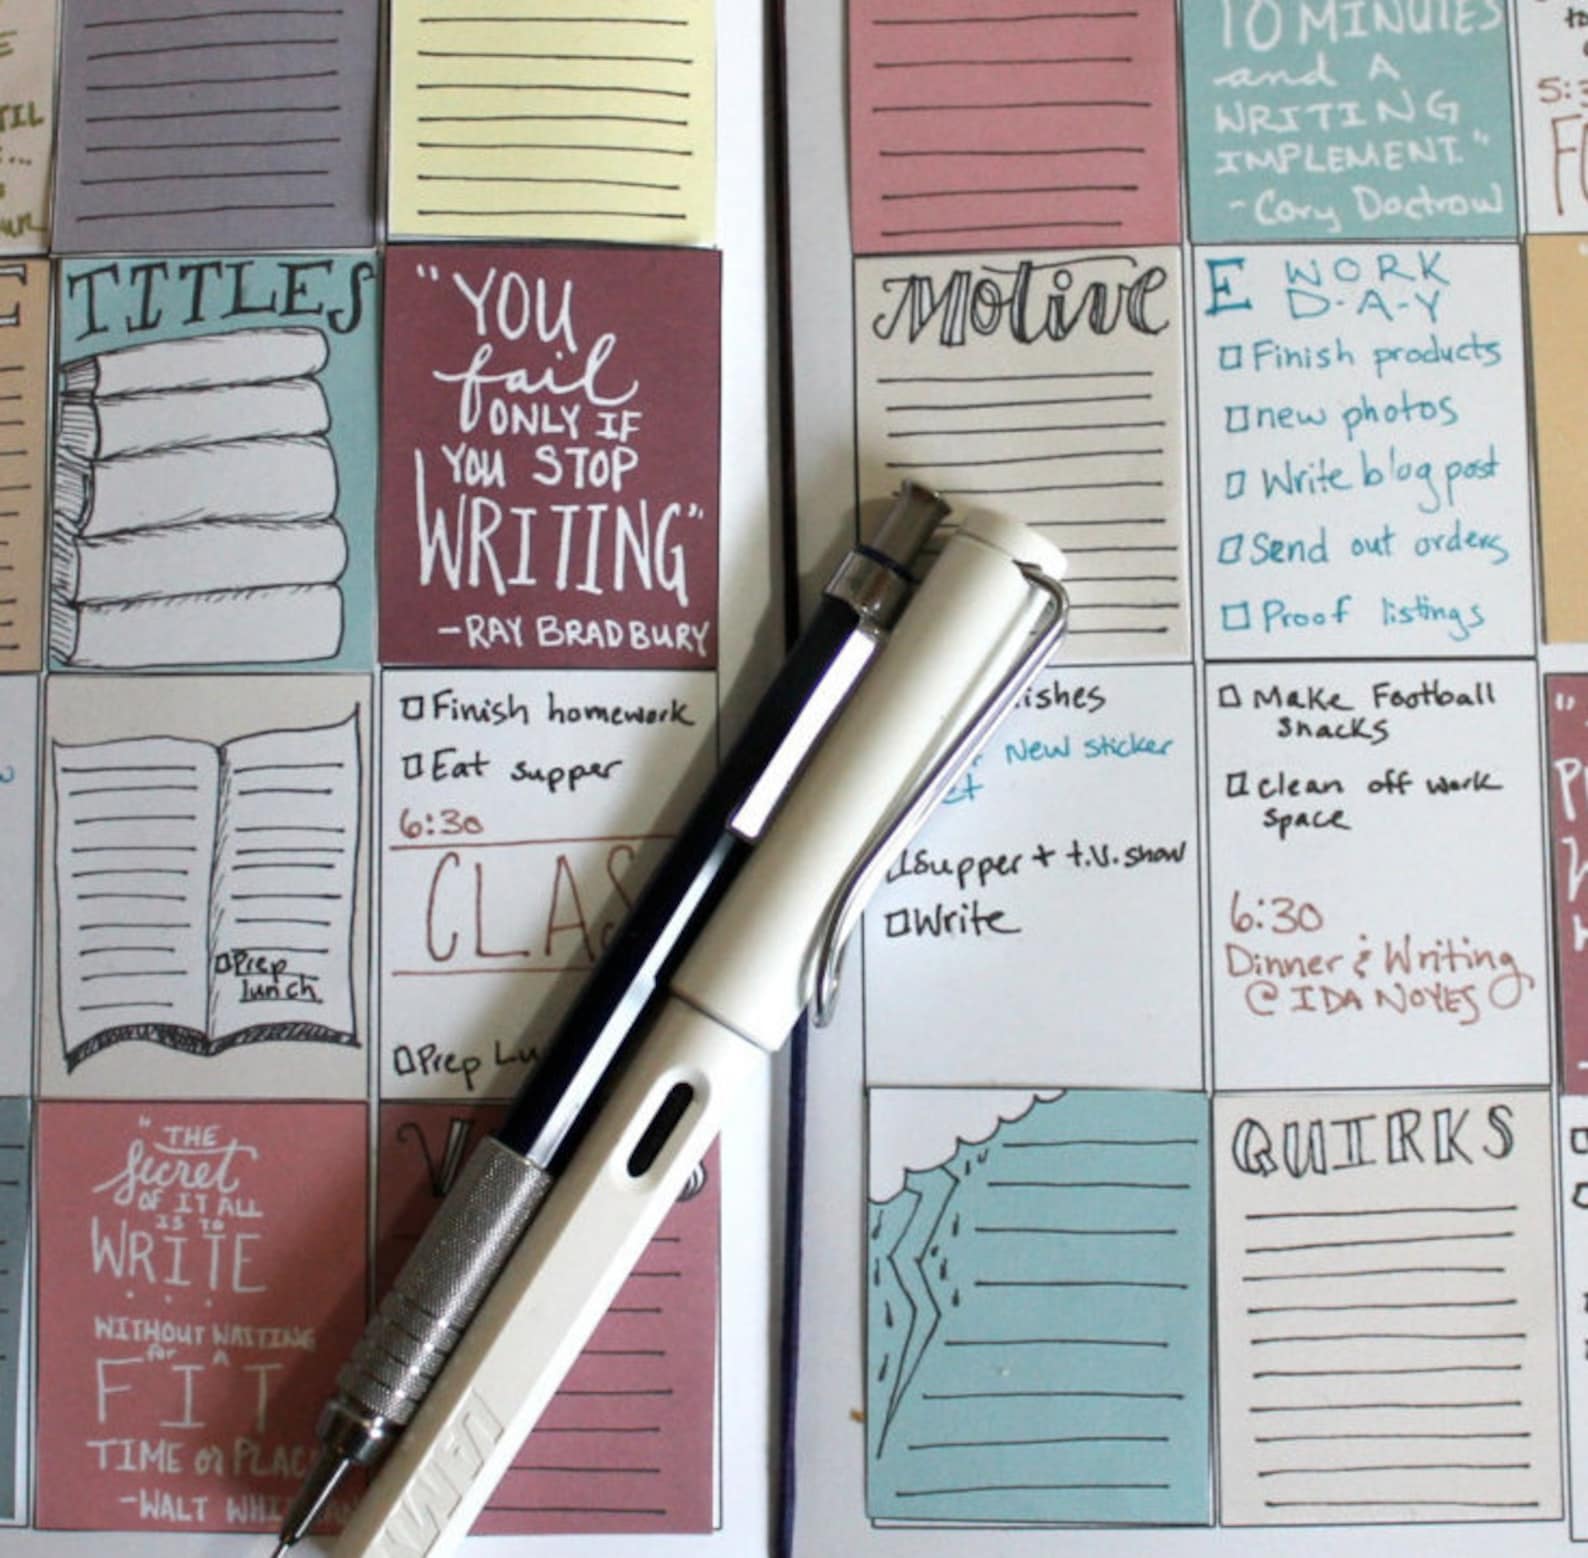 TIL
10 MINUTES
and A
WRITING
IMPLEMENT."
- Cory Doctrow
TITLES
"YOU
fail
ONLY IF
YOU STOP
WRITING"
-RAY BRADBURY
Motive
E WORK
D-A-Y
Finish products
new photos
Write blog post
Send out orders
Proof listings
Prep
lunch
Finish homework
Eat supper
6:30
CLAS
Prep Lu
ishes
New sticker
Supper + t.v. show
Write
Make Football
Snacks
Clean off work
space
6:30
Dinner & Writing
@ IDA NOYES
"THE
Secret
OF IT ALL
IS TO
WRITE
...
WITHOUT WAITING
for A
FIT
TIME or PLAC
-WALT WHI
QUIRKS
LAMY